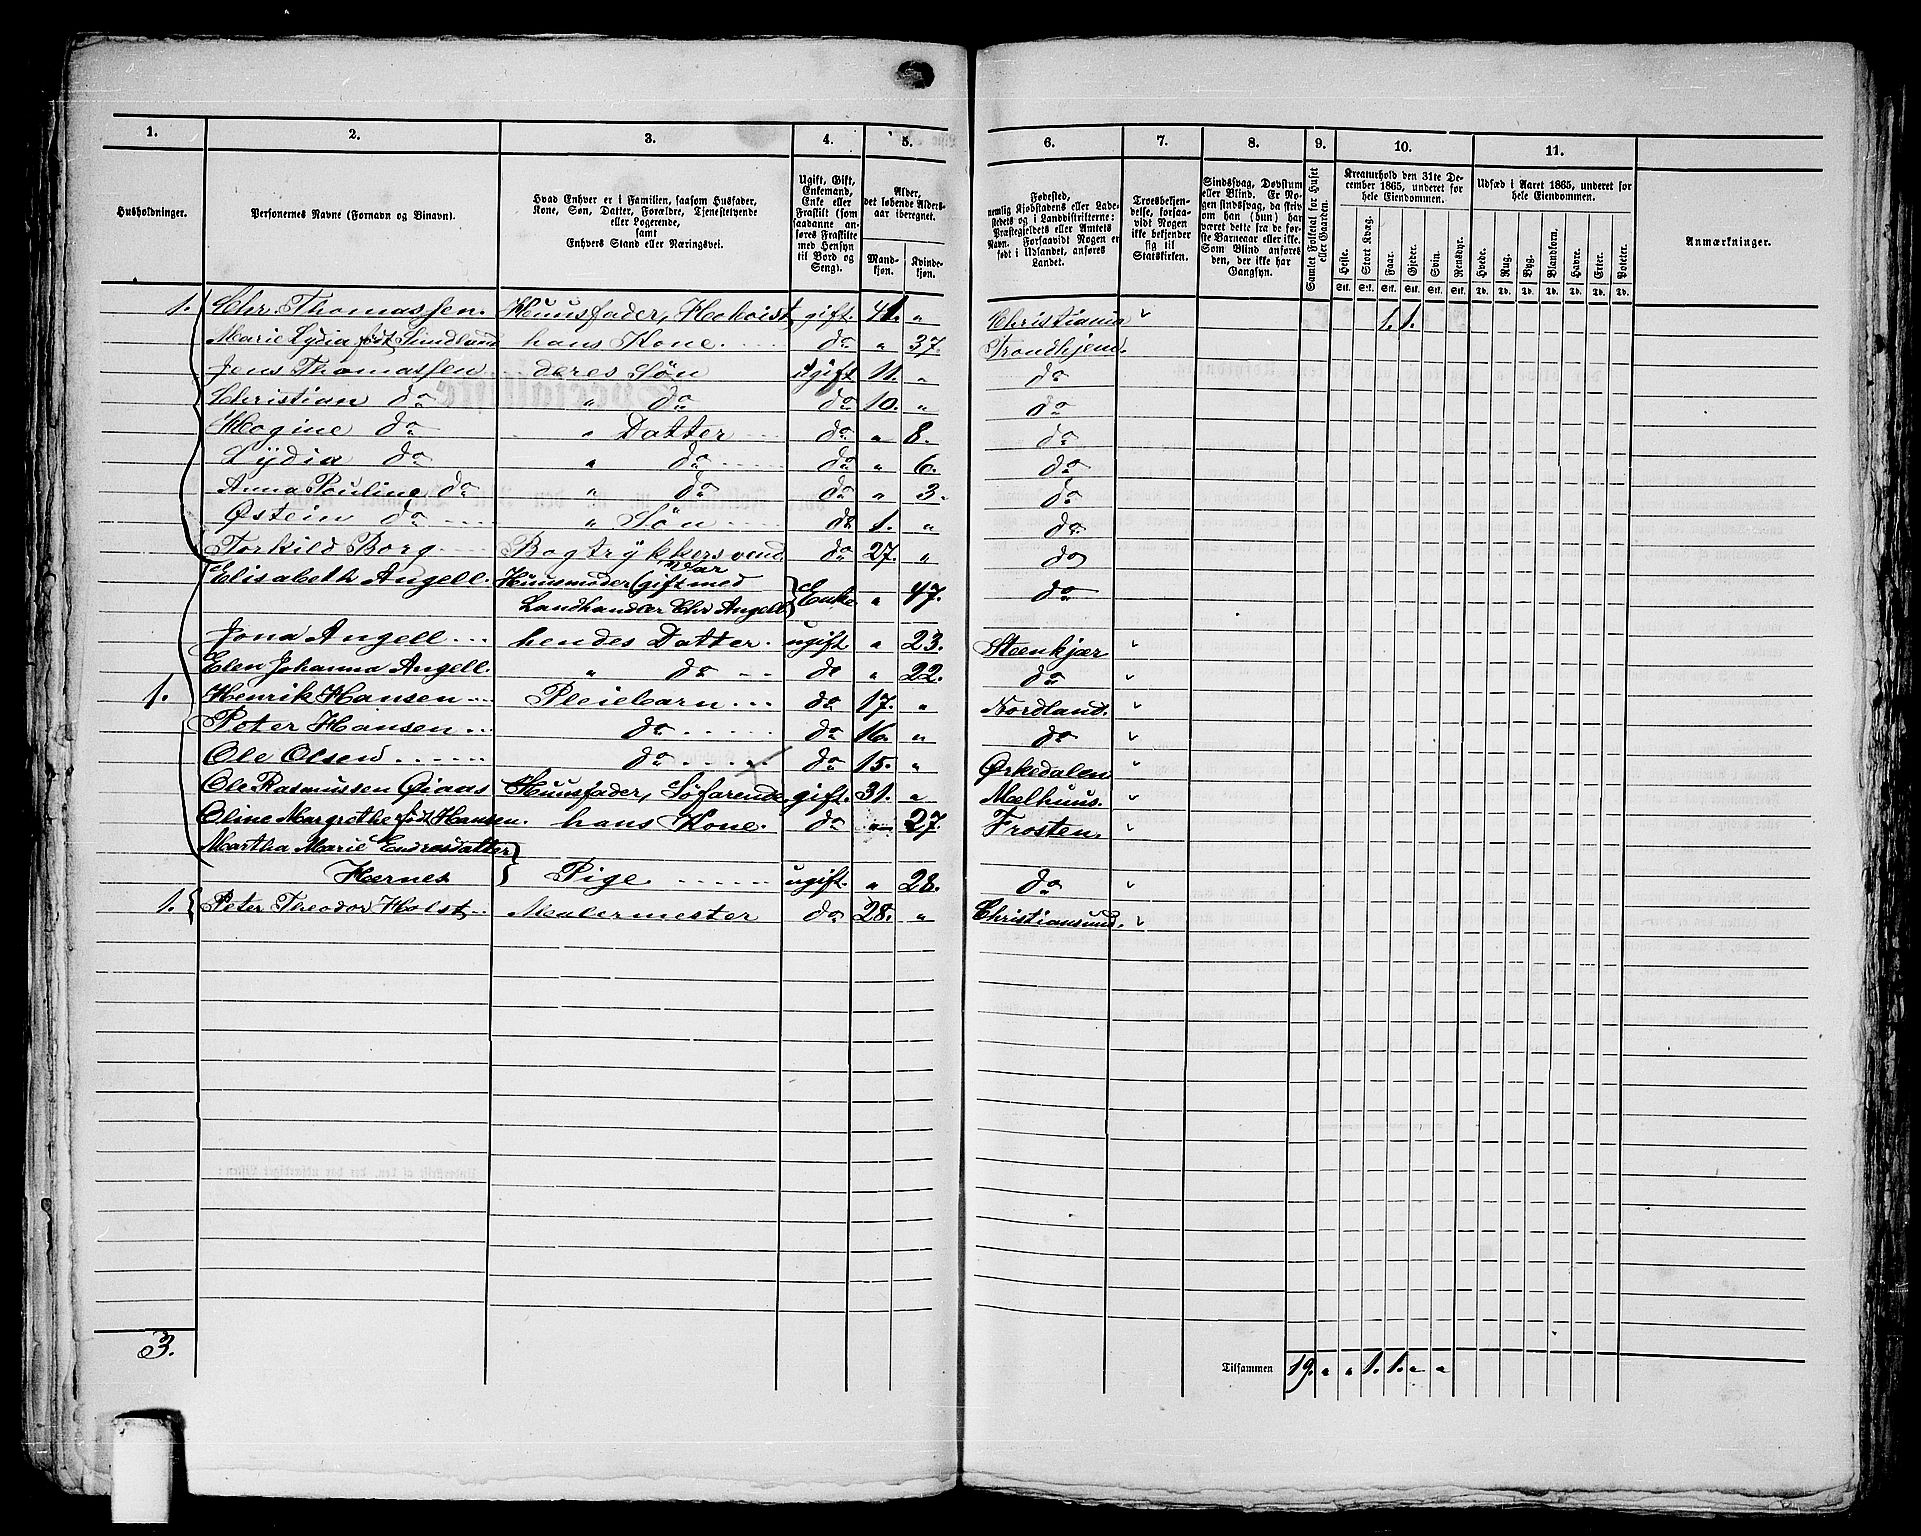 1. 2. 3. 4. 5. 6. 7. 8. 9. 10. 11.
Husholdninger.
Personernes Navne (Fornavn og Binavn).
Hvad Enhver er i Familien, saasom Husfader,
Kone, Søn, Datter, Forældre, Tjenestetyende
eller Logerende,
samt
Enhvers Stand eller Næringsvei.
Ugift, Gift,
Enkemand,
Enke eller
Fraskilt (som
saadanne an-
føres Fraskilte
med Hensyn
til Bord og
Seng).
Alder,
det løbende Alders-
aar iberegnet.
Mand-
kjøn.
Kvinde-
kjøn.
Fødested,
nemlig Kjøbstadens eller Lade-
stedets og i Landdistrikterne:
Præstegjeldets eller Amtets
Navn. Forsaavidt Nogen er
født i Udlandet, anføres
Landet.
Troesbekjen-
delse, forsaa-
vidt Nogen
ikke bekjender
sig til
Statskirken.
Sindssvag, Døvstum
eller Blind. Er No-
gen sindssvag, da skriv
om han (hun) har
været dette fra de før-
ste Barneaar eller ikke.
Som Blind anføres
den, der ikke har
Gangsyn.
Samlet Folketal for Huset
eller Gaarden.
Kreaturhold den 31te De-
cember 1865, underet for
hele Eiendommen.
Heste. Stort Kvæg. Faar. Gjeder. Svin. Rensdyr.
Stk. Stk. Stk. Stk. Stk. Stk.
Udsæd i Aaret 1865, underet for
hele Eiendommen.
Hvede. Rug. Byg. Blandkorn. Havre. Erter. Poteter.
Td. Td. Td. Td. Td. Td. Td.
Anmærkninger.
1. Chr. Thomassen. Huusfader, Hoboist gift 41. " Christiania " 1. 1.
Marie Lydia født hans Kone. do " 37. Trondhjem.
Jens Thomassen deres Søn ugift 11. " do
Christian do " do do 10. " do
Hogine do " Datter do " 8. do
Lydia do " do do " 6. do
Anna Pauline do " do do " 3. do
Østein do " Søn do 1. " do
Torkild Borg Bogtrykkersvend do 27. " do
Elisabeth Angell. Huusmoder (var gift med
Landhandler Chr Angell) Enke " 47. do
Jona Angell hendes Datter. ugift " 23. Steenkjær "
Elen Johanna Angell. " do do " 22. do "
1. Henrik Hansen Pleiebarn do 17. " Nordland. "
Peter Hansen do do 16. " do "
Ole Olsen do do 15. " Ørkedalen "
Ole Rasmussen Øiaas Huusfader, Søfarende gift. 31. " Melhuus. "
Oline Margrethe født Hansen. hans Kone. do " 27. Frosten. "
Martha Marie Endresdatter
Hernes Pige ugift. " 28. do "
1. Peter Theodor Holst Malermester do 28. " Christiansund. "
3.
Tilsammen 19. " " 1. 1. " "